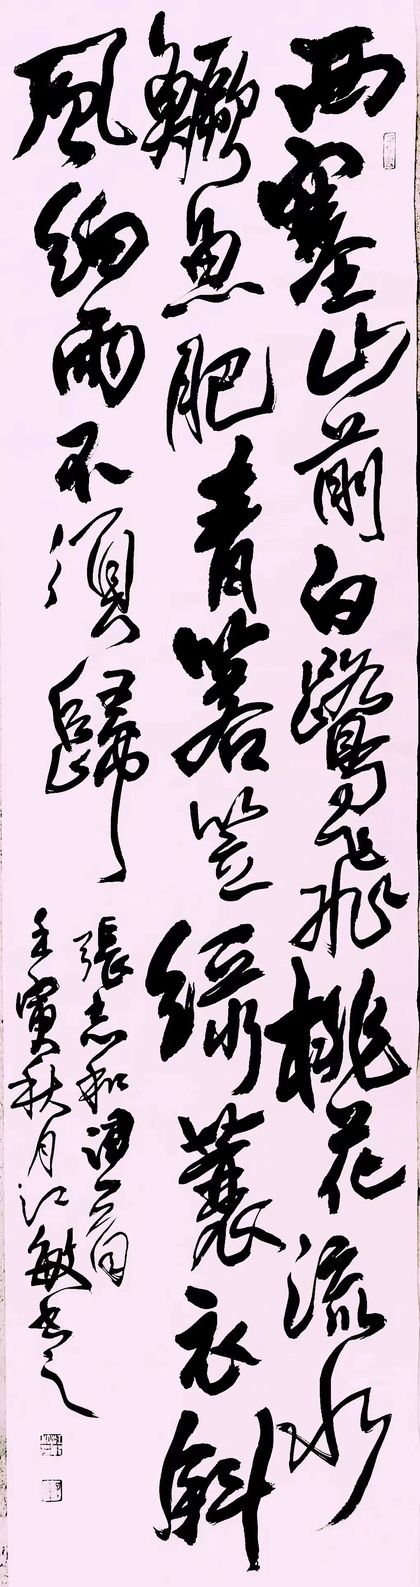 西塞山前白鷺飛桃花流水
鱖魚肥青箬笠綠蓑衣斜
風細雨不須歸
張志和詞一首
壬寅秋月江敏書之